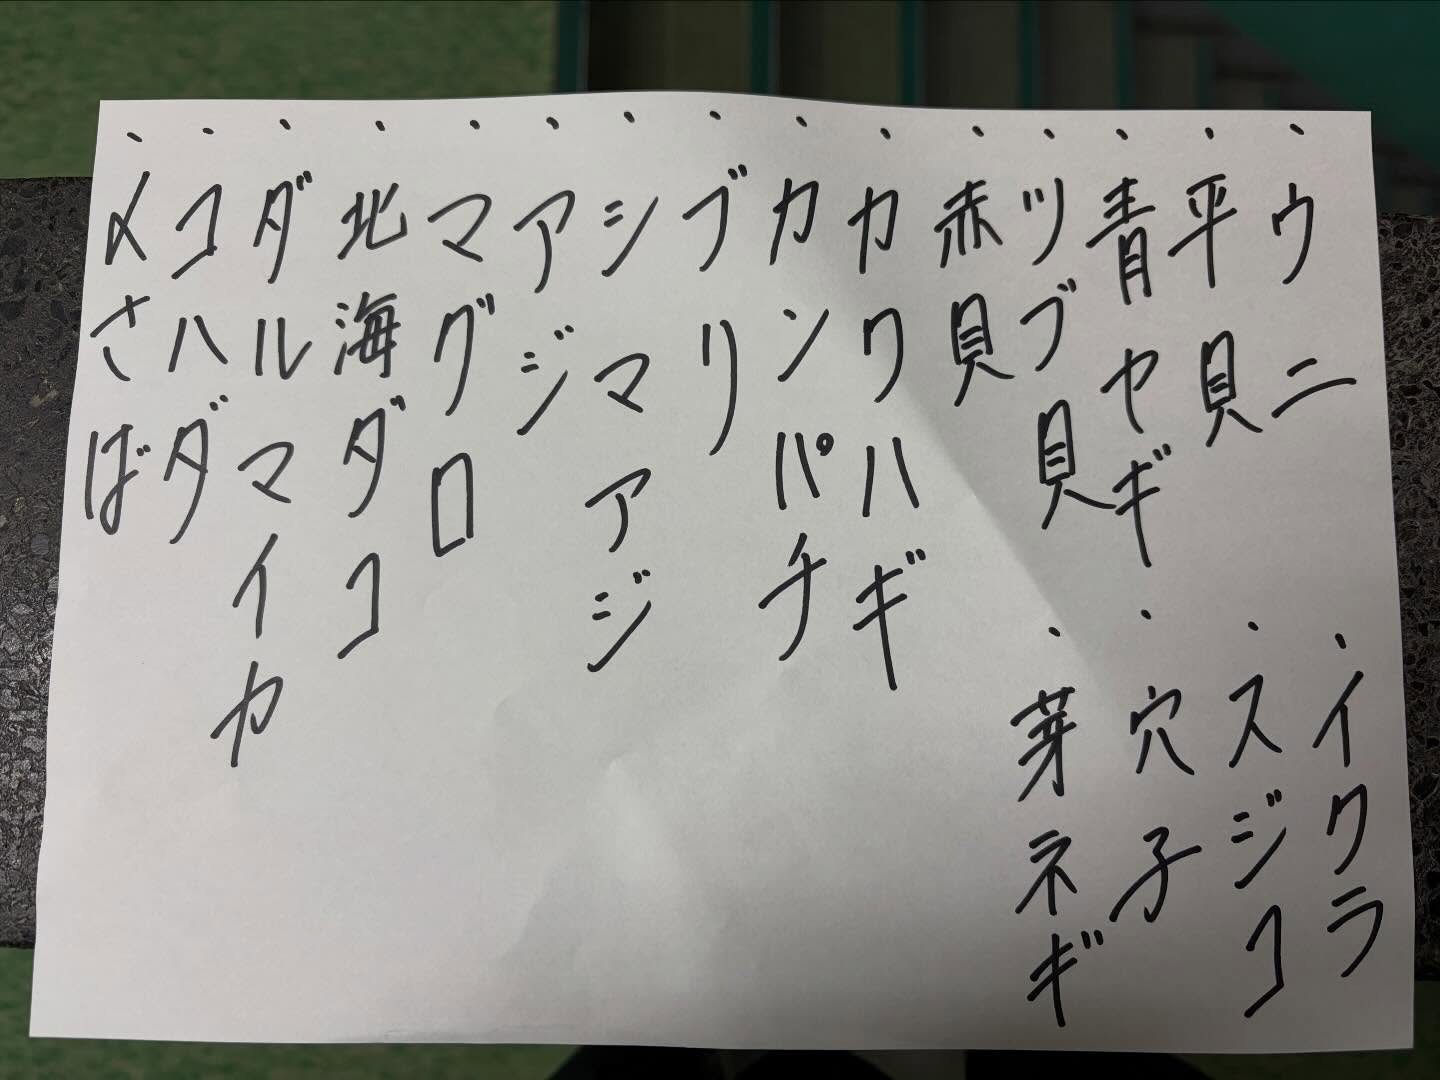 ・ウニ
・平貝
・青ヤギ
・ツブ貝
・赤貝
・カワハギ
・カンパチ
・ブリ
・シマアジ
・アジ
・マグロ
・北海ダコ
・ダルマイカ
・コハダ
・〆さば
・イクラ
・スジコ
・穴子
・芽ネギ